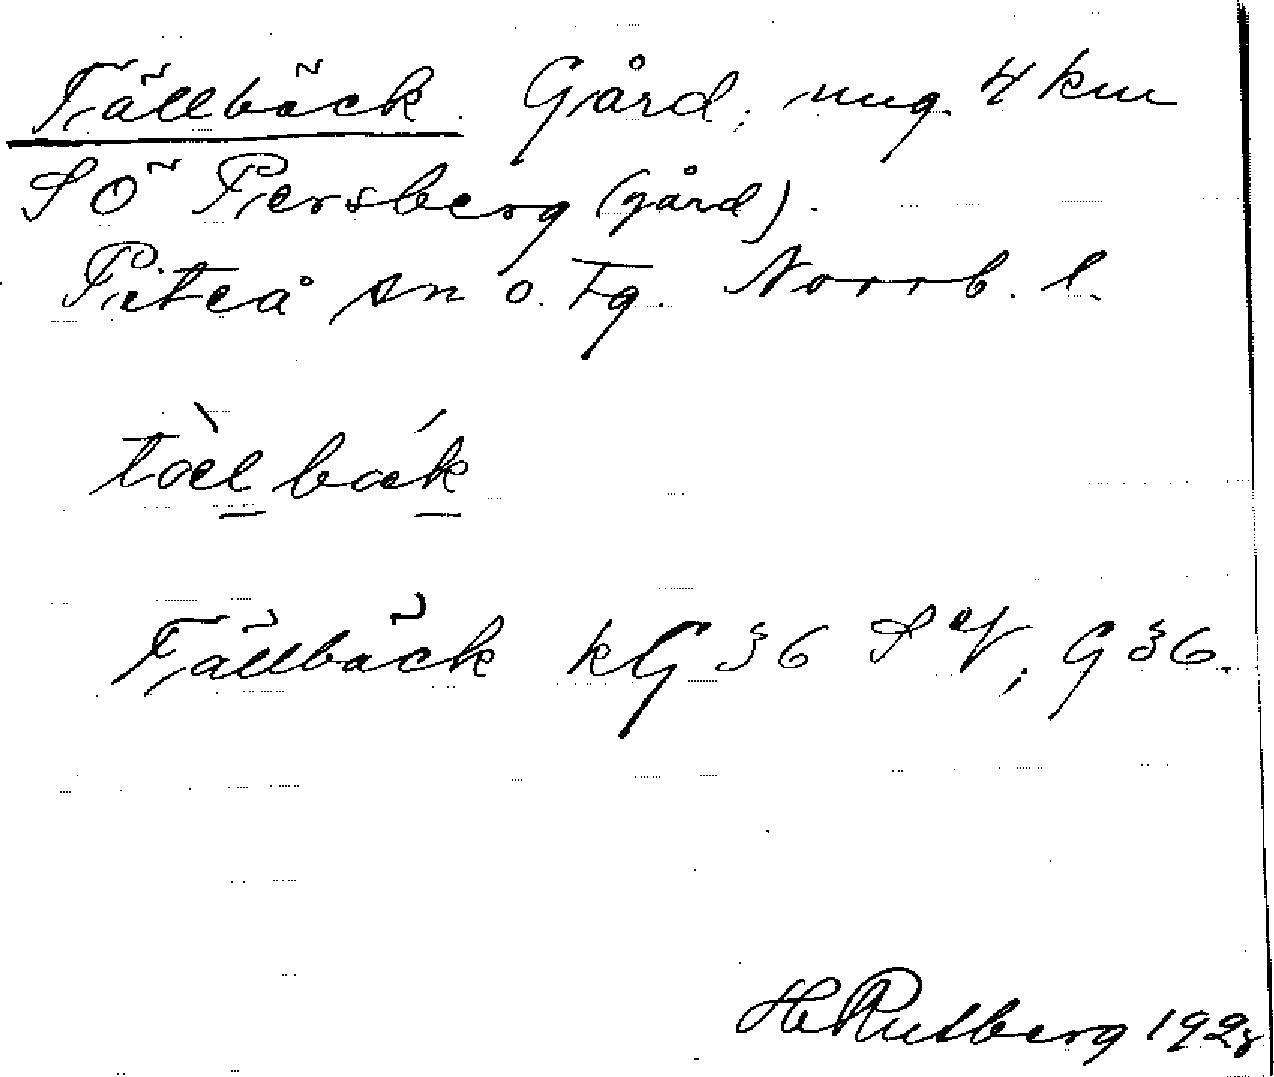 Tällbäck. Gård, ung. 4 km
SÖ Persberg (gård).
Piteå sn o. tg. Norrb. l.
tæ̀l bǽk
Tällbäck kG 36 SV, G 36.
H Rutberg 1928